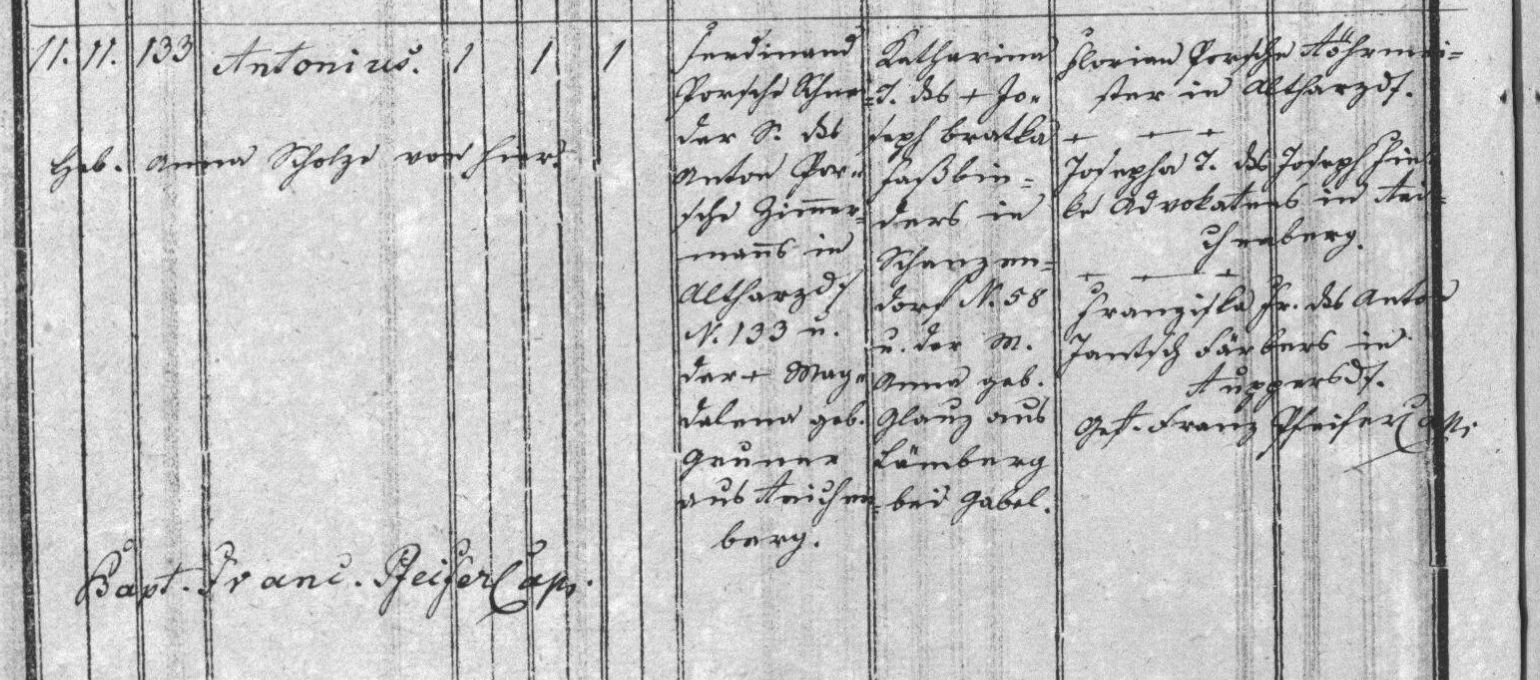 11. 11. 133 Antonius. 1 1 1
Heb. Anna Scholze von hier.
Bapt. Franc. Pfeifer Cap.
Ferdinand
Porsche Schnei-
der S. des
Anton Por-
sche Zimmer-
manns in
Altharzdf
N. 133 u.
der + Mag-
dalena geb.
Gruner
aus Reichen-
berg.
Katharina
T. des + Jo-
seph Bratka
Faßbin-
ders in
Schanzen-
dorf N. 58
u. der M.
Anna geb.
Glanz aus
Lämberg
bei Gabel.
Florian Porsche Röhrmei-
ster in Altharzdf.
+ — + — +
Josepha T. des Joseph
ke Advokatens in Rei-
chenberg.
+ — + — +
Franziska Fr. des Anton
Jantsch Färbers in
Ruppersdf.
Get. Franz Pfeifer Cap.